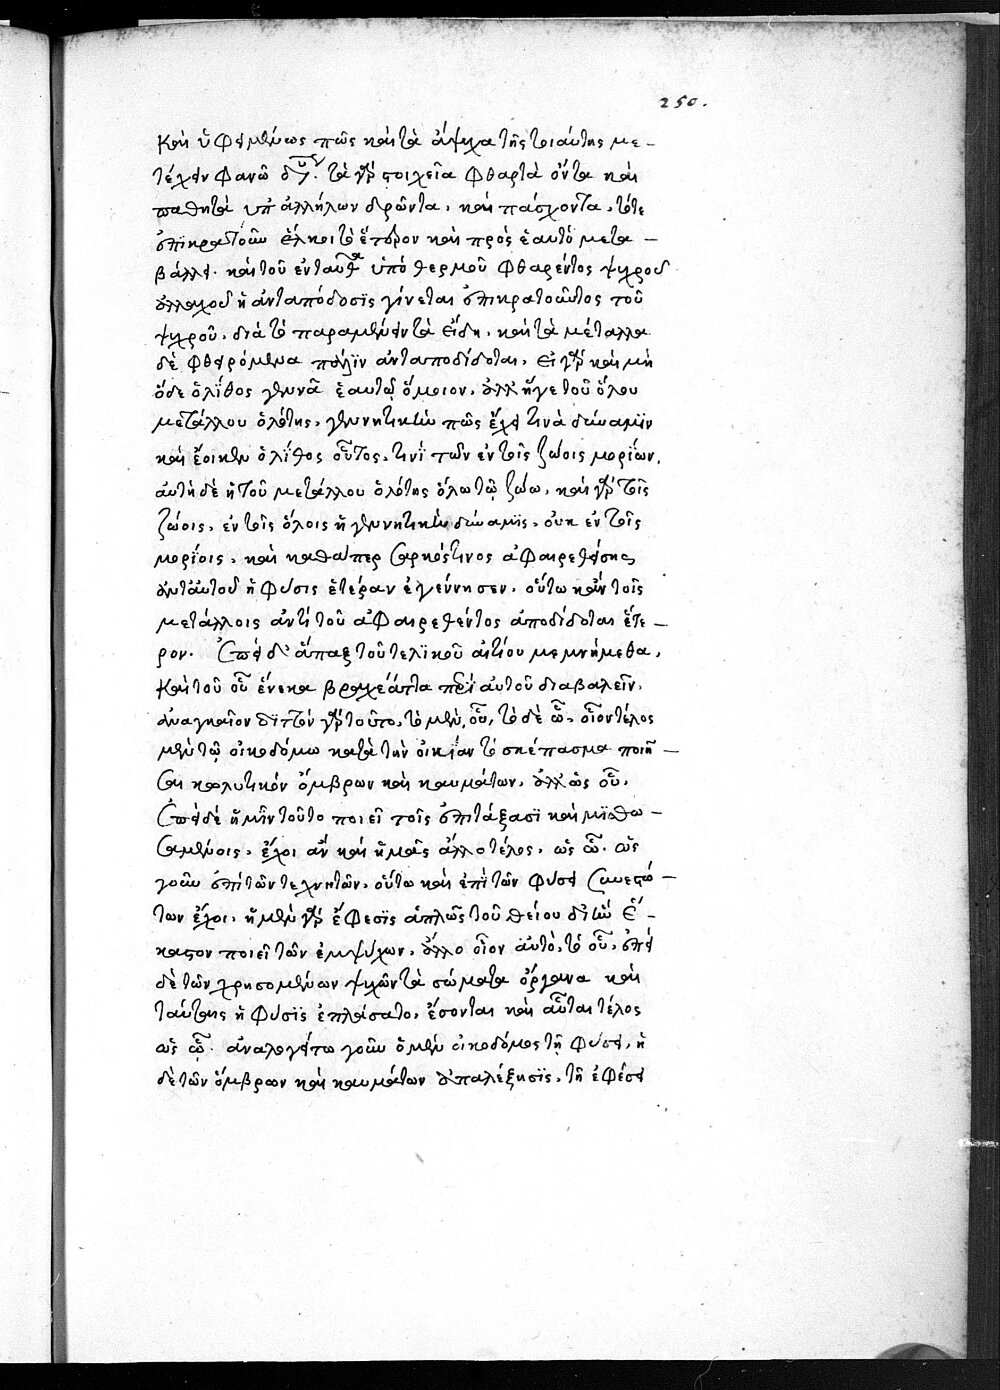 250.
καὶ ὑφειμένως πῶς καὶ τὰ ἄψυχα τῆς τοιαύτης με-
τέχειν φανῶ. τὰ γὰρ στοιχεῖα φθαρτὰ ὄντα καὶ
παθητὰ ὑπ' ἀλλήλων δρῶντα, καὶ πάσχοντα, τότε
ἐπικρατοῦν ἕλκει τὸ ἕτερον καὶ πρὸς ἑαυτὸ μετα-
βάλλει. καὶ τοῦ ἐνταῦθα ὑπὸ θερμοῦ φθαρέντος ψυχροῦ
ἀλλαχοῦ ἡ ἀνταπόδοσϊς γίνεται ἐπικρατοῦντος τοῦ
ψυχροῦ, διὰ τὸ παραμένειν τὰ εἴδη, καὶ τὰ μέταλλα
δὲ φθειρόμενα πάλϊν ἀνταποδίδοται, εἰ γὰρ καὶ μὴ
ὅδε ὁ λίθος γεννᾶ ἑαυτῷ ὅμοιον, ἀλλ' ἥγε τοῦ ὅλου
μετάλλου ὁλότης, γεννητικὴν πῶς ἔχει τινὰ δύναμϊν
καὶ ἔοικεν ὁ λίθος οὗτος, τινὶ τῶν ἐν τοῖς ζώοις μορίων,
αὐτὴ δὲ ἡ τοῦ μετάλλου ὁλότης ὅλω τῷ ζώω, καὶ γὰρ τοῖς
ζώοις, ἐν τοῖς ὅλοις ἡ γεννητικὴ δύναμϊς, οὐκ ἐν τοῖς
μορίοις, καὶ καθάπερ σαρκός τινος ἀφαιρεθείσης
ἀντ' αὐτοῦ ἡ φύσις ἑτέραν ἐγέννησεν, οὕτω κἀν τοῖς
μετάλλοις ἀντὶ τοῦ ἀφαιρεθέντος ἀποδίδοται ἕτε-
ρον. Ἐπεὶ δ' ἅπαξ τοῦ τελϊκοῦ αἰτίου μεμνήμεθα,
καὶ τοῦ οὗ ἕνεκα βραχέα ἄττα περὶ αὐτοῦ διαβαλεῖν,
ἀναγκαῖον διττὸν γὰρ τοῦτο, τὸ μὲν, οὗ, τὸ δὲ ᾧ, οἷον τέλος
μὲν τῷ οἰκοδόμω κατὰ τὴν οἰκίαν τὸ σκέπασμα ποιῆ-
σαι κωλυτικὸν ὄμβρων καὶ καυμάτων, ἀλλ' ὡς οὗ,
Ἐπεὶ δὲ ἡμῖν τοῦτο ποιεῖ τοῖς ἐπιτάξασϊ καὶ μϊσθω-
σαμένοις, ἔχοι ἂν καὶ ἡμᾶς ἄλλο τέλος, ὡς ᾧ. ὡς
γοῦν ἐπὶ τῶν τεχνητῶν, οὕτω καὶ ἐπὶ τῶν φύσει συνεστώ-
των ἔχοι, ἡ μὲν γὰρ ἔφεσϊς ἁπλῶς τοῦ θείου δι' ἣν ἕ-
καστον ποιεῖ τῶν ἐμψύχων, ἄλλο οἷον αὐτὸ, τὸ οὗ, ἐπεὶ
δὲ τῶν χρησομένων ψυχῶν τὰ σώματα ὄργανα καὶ
ταύταις ἡ φύσϊς ἐπλάσατο, ἔσονται καὶ αὗται τέλος
ὡς ᾧ. ἀναλογείτω γοῦν ὁ μὲν οἰκοδόμος τῇ φύσει, ἡ
δὲ τῶν ὄμβρων καὶ καυμάτων ἀπαλέξησϊς, τῇ ἐφέσει